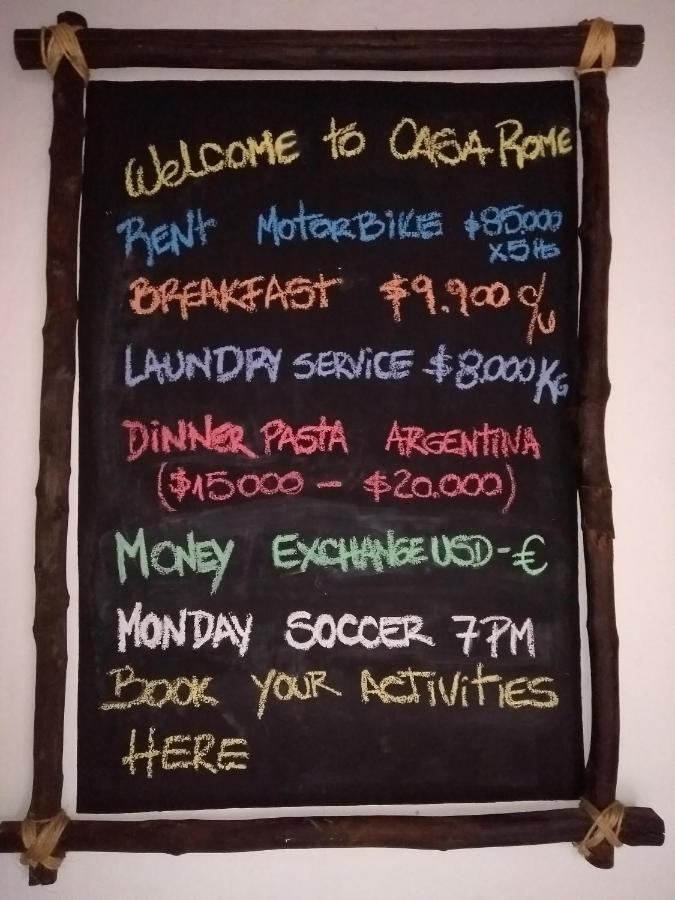 WelCOME to CASA ROME
RENt MOtORBiKE $85.000
x5 HS
BREAKFAST $9.900 c/u
LAUNDRY SERViCE $8.000 KG
DiNNER PASTA ARGENtiNA
($15000 - $20.000)
MONEY EXCHANGE USD-€
MONDAY SOCCER 7PM
BOOK YOUR ACTiViTiES
HERE